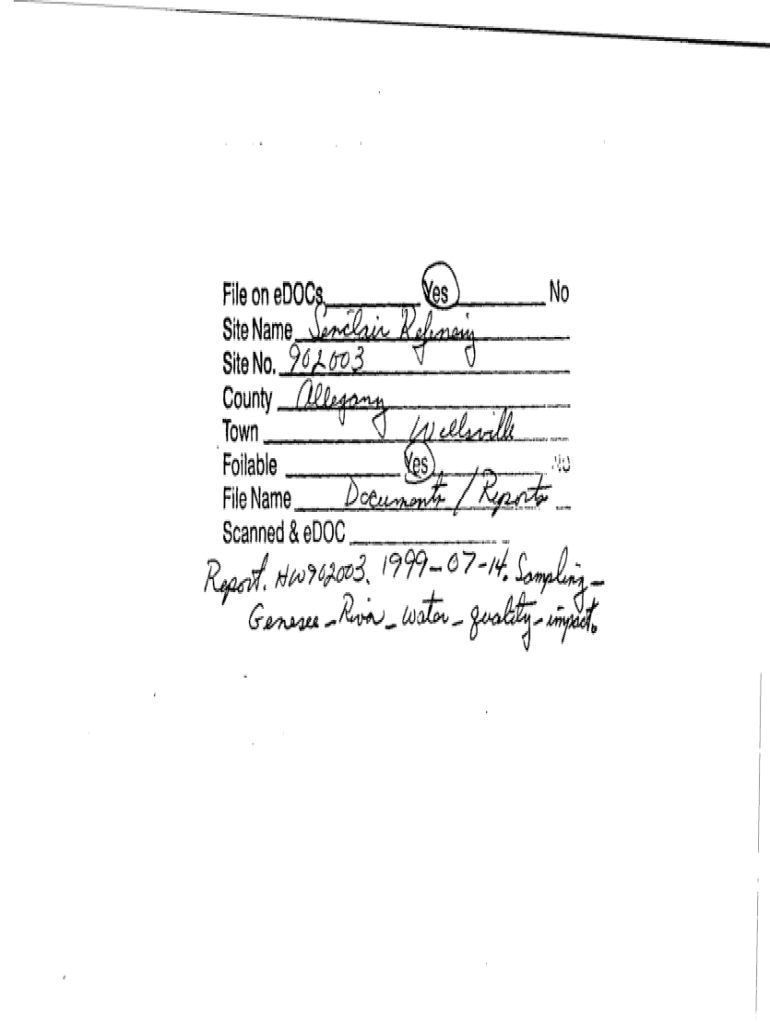 File on eDOCs Yes No
Site Name Sinclair Refining
Site No. 902003
County Allegany
Town Wellsville
Foilable Yes No
File Name Documents / Reports
Scanned & eDOC
Report. HW902003. 1999-07-14. Sampling-
Genesee-River-water-quality-impact.